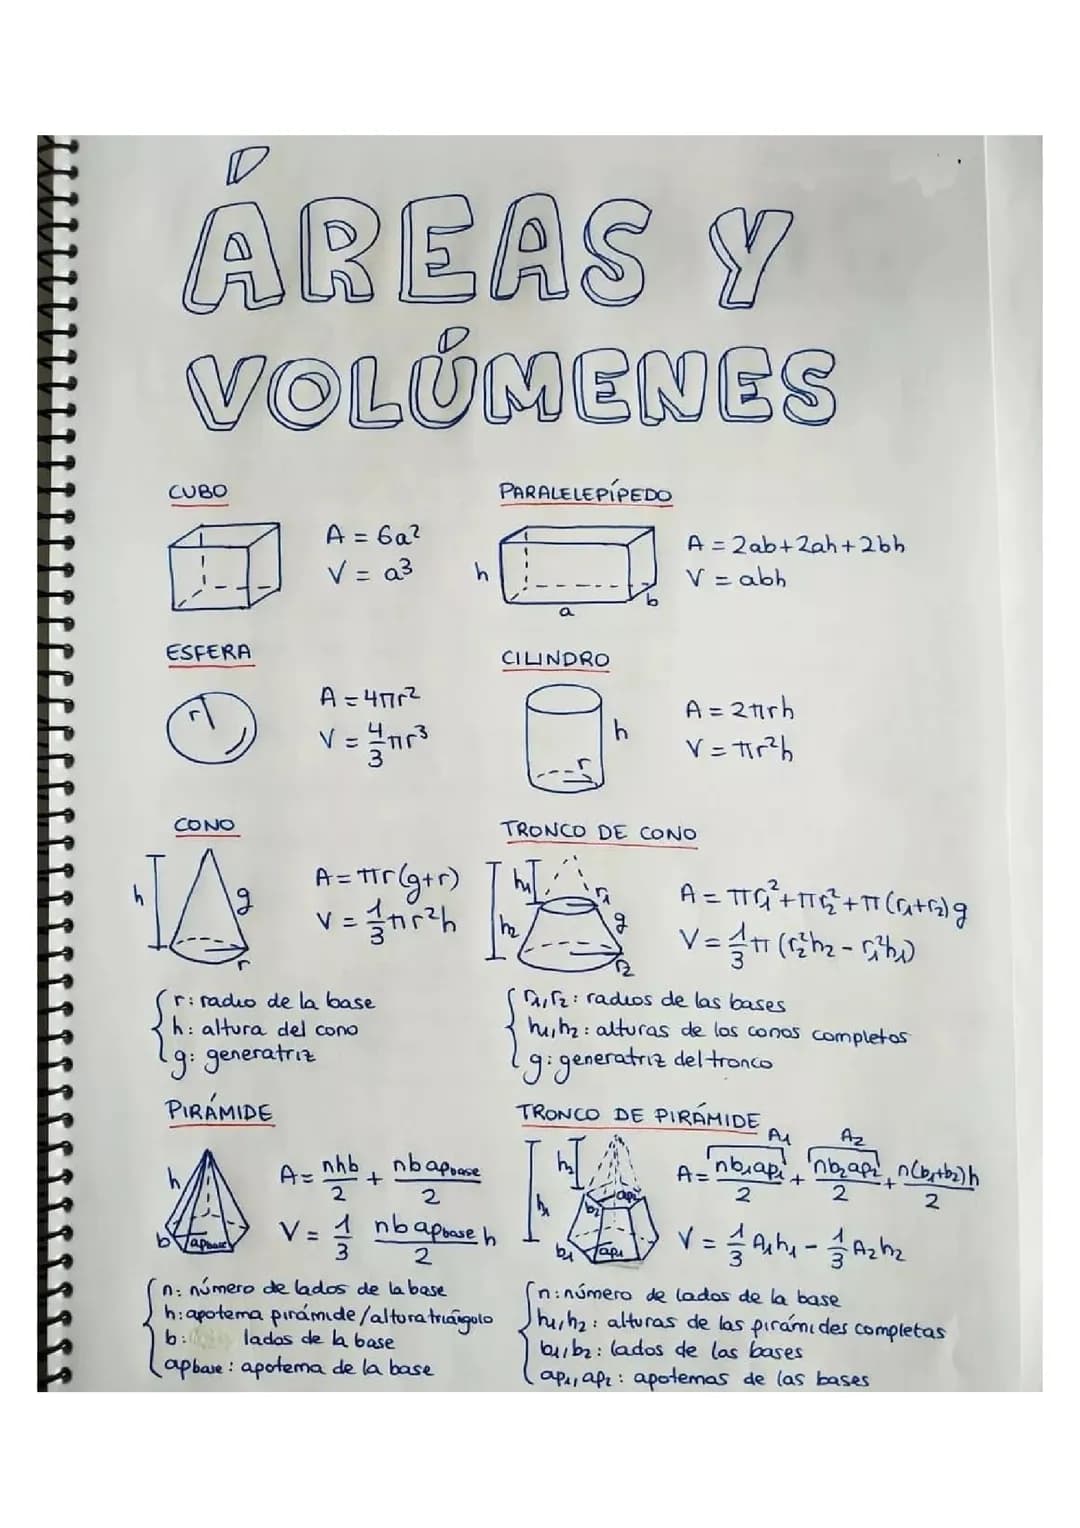 ÁREAS Y
VOLÚMENES
CUBO
A = 6a²
V = a³
PARALELEPÍPEDO
h
a
b
A = 2ab+2ah+2bh
V = abh
ESFERA
r
A = 4πr²
V = 4/3 πr³
CILINDRO
h
r
A = 2πrh
V = πr²h
CONO
h
g
r
A = πr(g+r)
V = 1/3 πr²h
r: radio de la base
h: altura del cono
g: generatriz
TRONCO DE CONO
h₁
h₂
r₁
g
r₂
A = πr₁²+πr₂²+π(r₁+r₂)g
V = 1/3 π(r₂²h₂ - r₁²h₁)
r₁,r₂: radios de las bases
h₁,h₂: alturas de los conos completos
g: generatriz del tronco
PIRÁMIDE
h
b
apbase
A = nhb/2 + nb apbase/2
V = 1/3 nb apbase/2 h
n: número de lados de la base
h: apotema pirámide/altura triángulo
b: lados de la base
apbase: apotema de la base
TRONCO DE PIRÁMIDE
h₂
h₁
b₂
ap₂
b₁
ap₁
A₁
A₂
A = nb₁ap₁/2 + nb₂ap₂/2 + n(b₁+b₂)h/2
V = 1/3 A₁h₁ - 1/3 A₂h₂
n: número de lados de la base
h₁,h₂: alturas de las pirámides completas
b₁,b₂: lados de las bases
ap₁,ap₂: apotemas de las bases